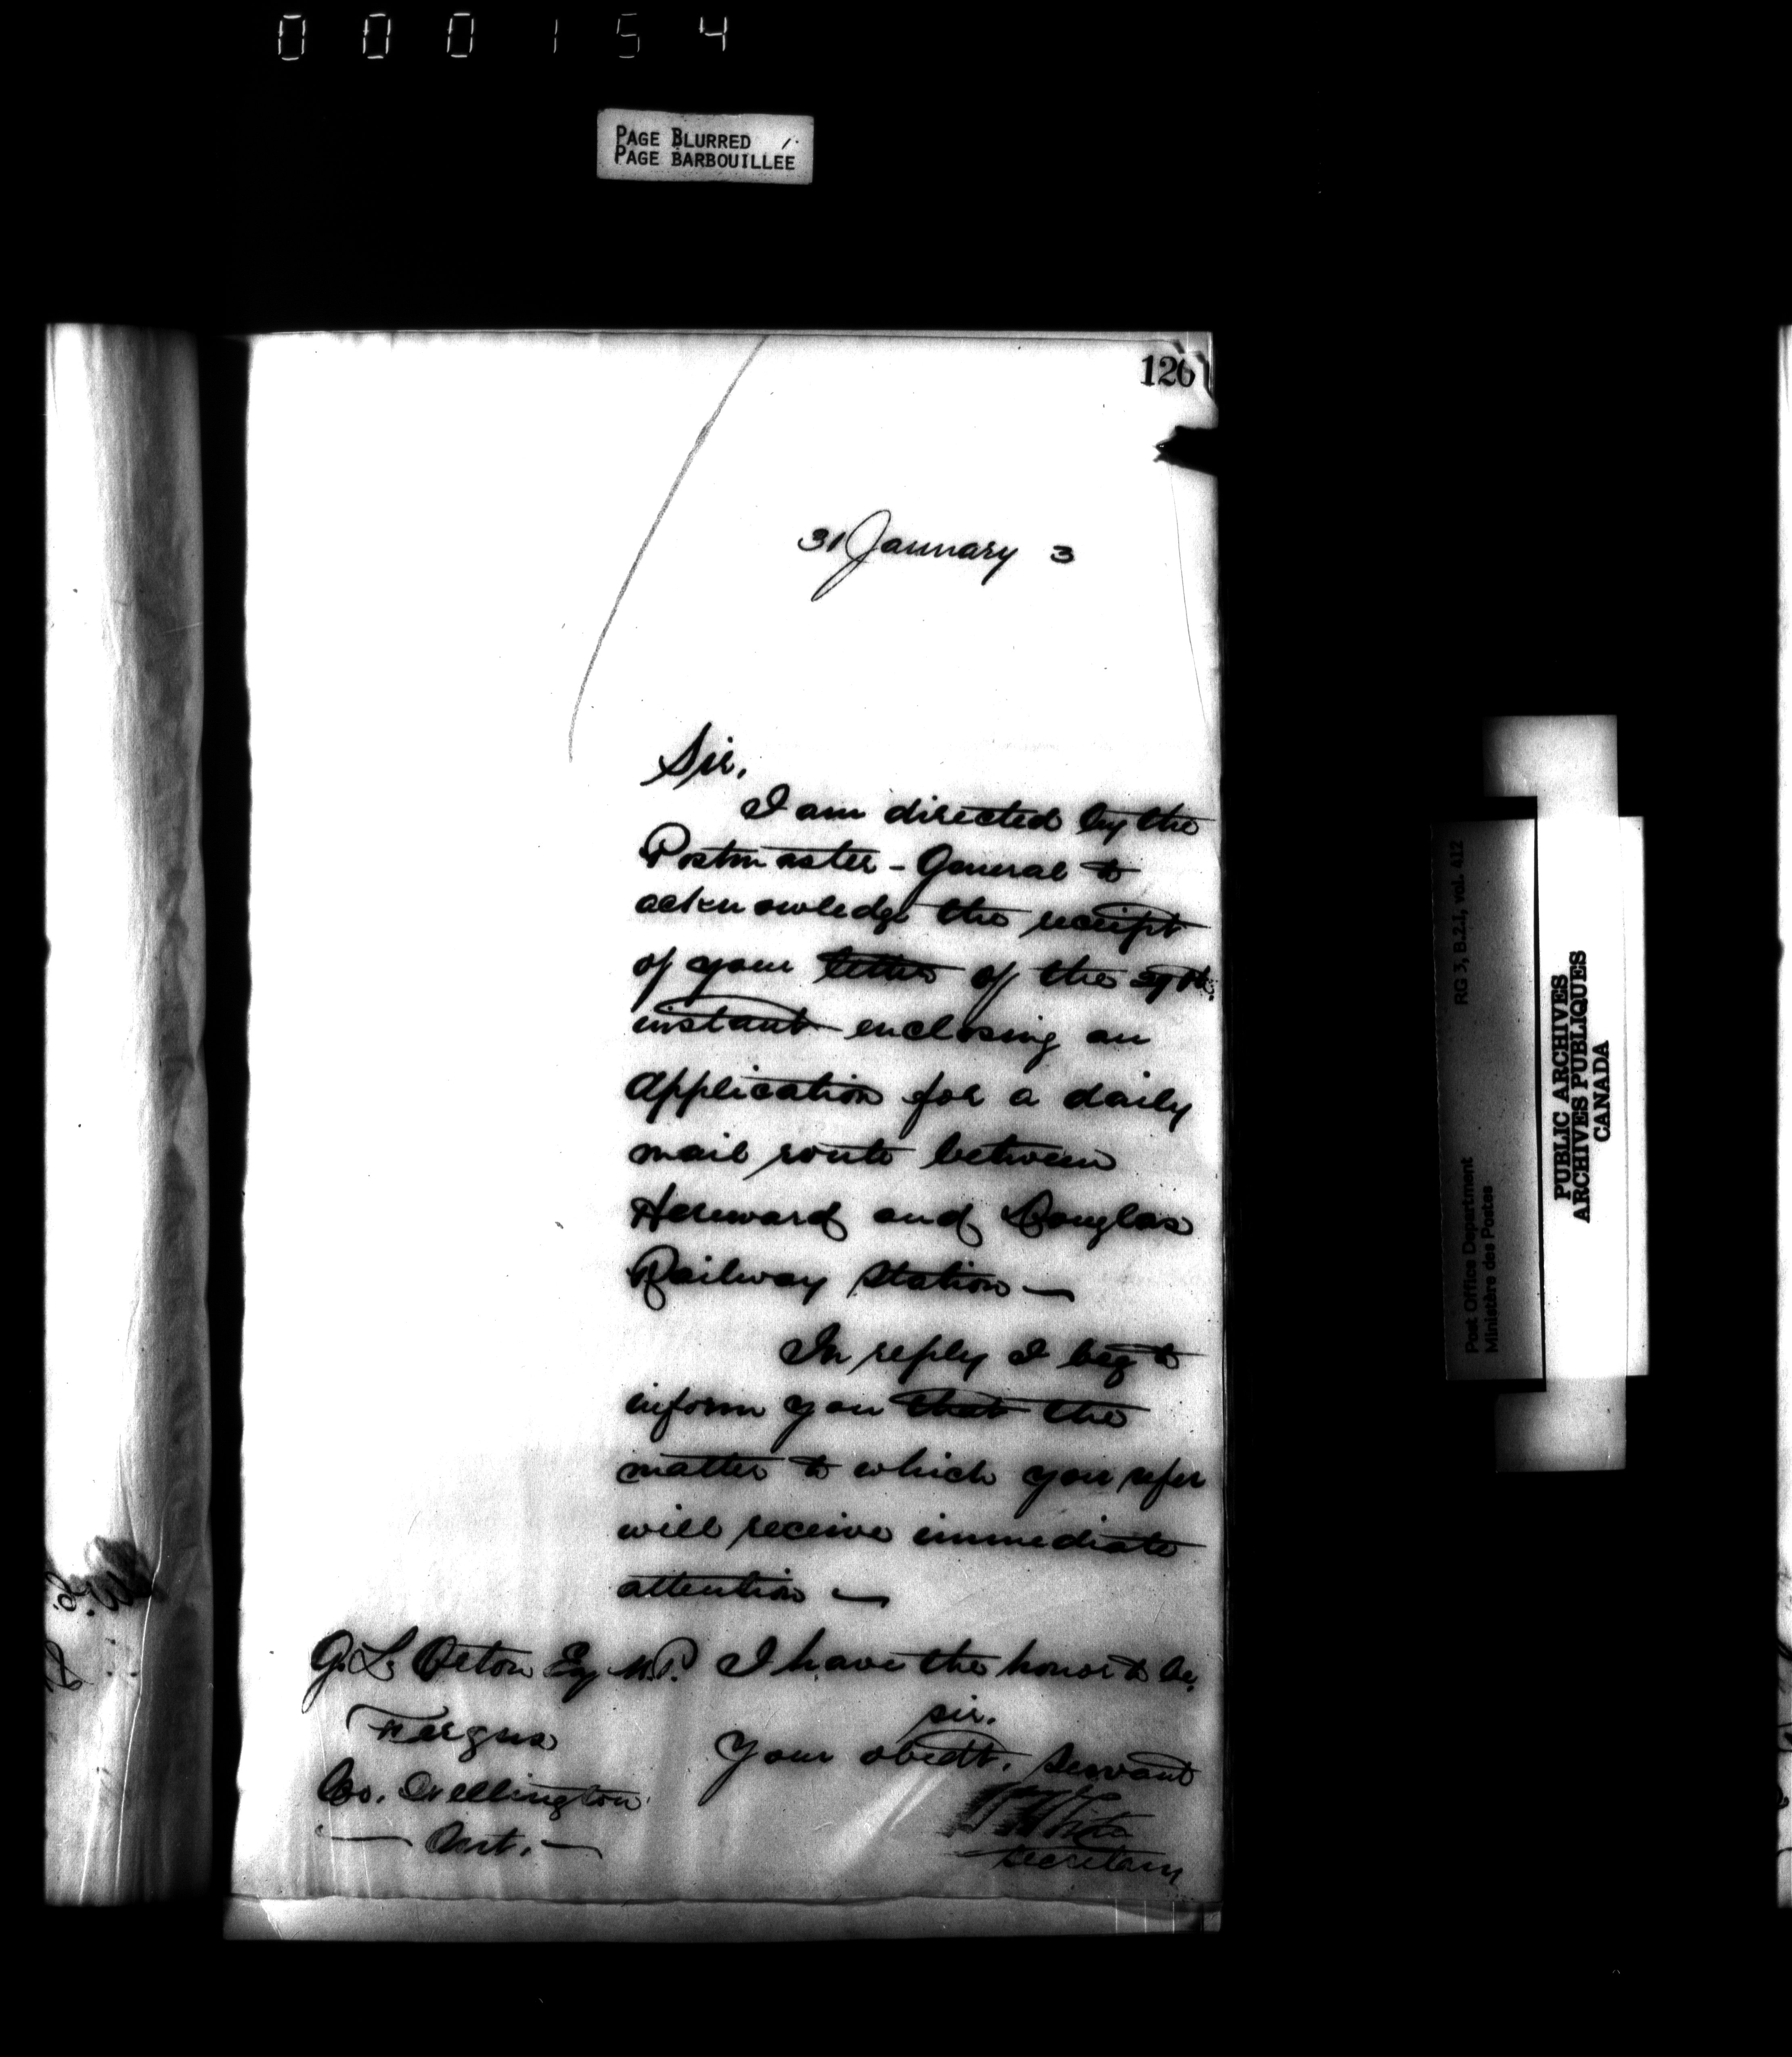 000154
PAGE BLURRED
PAGE BARBOUILLÉE
126
31 January 3
Sir,
I am directed by the
Postmaster-General to
acknowledge the receipt
of your letter of the
instant enclosing an
application for a daily
mail route between
Hereward and Douglas
Railway Station —
In reply I beg to
inform you that the
matter to which you refer
will receive immediate
attention —
I have the honor to be,
sir.
Your obedt. Servant
Secretary
G. L. Orton Esq M.P.
Fergus
Co. Wellington
— Ont. —
RG 3, B.2.1, vol. 412
Post Office Department
Ministère des Postes
PUBLIC ARCHIVES
ARCHIVES PUBLIQUES
CANADA